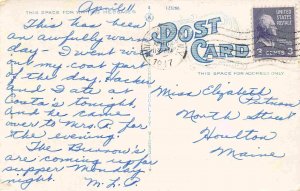 April 11
THIS SPACE FOR
This has been
an awfully warm
day - I went with
out my coat part
of the day. Hackie
and I ate at
Costa's tonight,
and he came
over to Mrs. P. for
the evening.
The Burrows's
are coming up for
supper Monday
night.
M.L.P.
POST
CARD
UNITED STATES
POSTAGE
3 CENTS 3
1947
THIS SPACE FOR ADDRESS ONLY
Miss Elizabeth
Putnam
North Street
Houlton
Maine